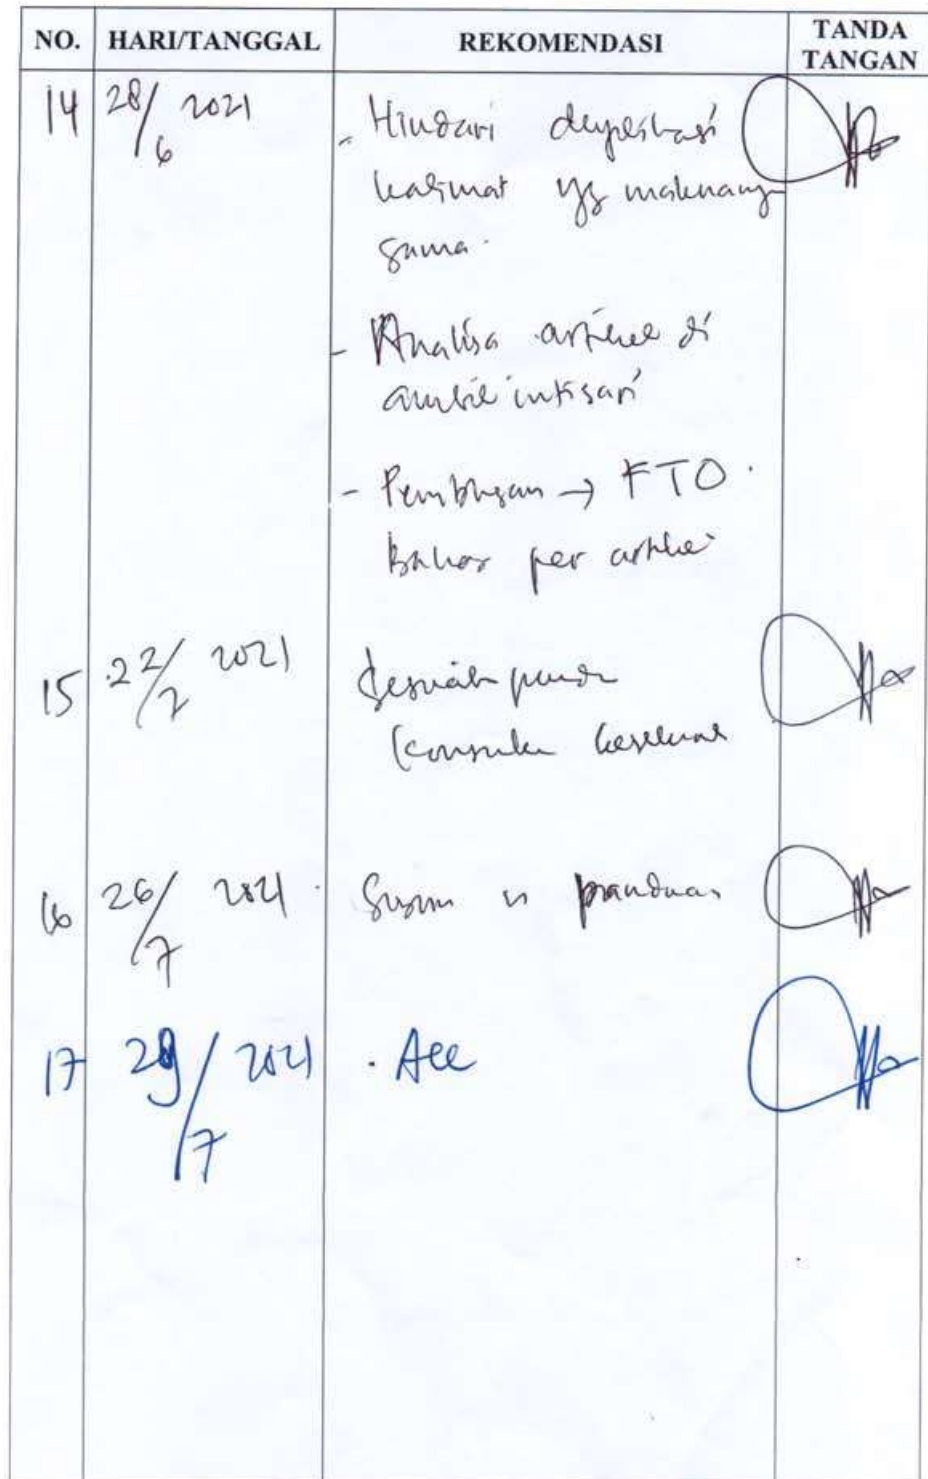 NO. HARI/TANGGAL REKOMENDASI TANDA TANGAN
14 28/6 2021 - Hindari duplikasi
kalimat yg maknanya
sama.
- Analisa artikel di
ambil intisari
- Pembhsan → FTO.
Bahas per artikel
15 22/7 2021 Sesuaik
konsulk
16 26/7 2021 Susun panduan
17 29/7 2021 . Acc